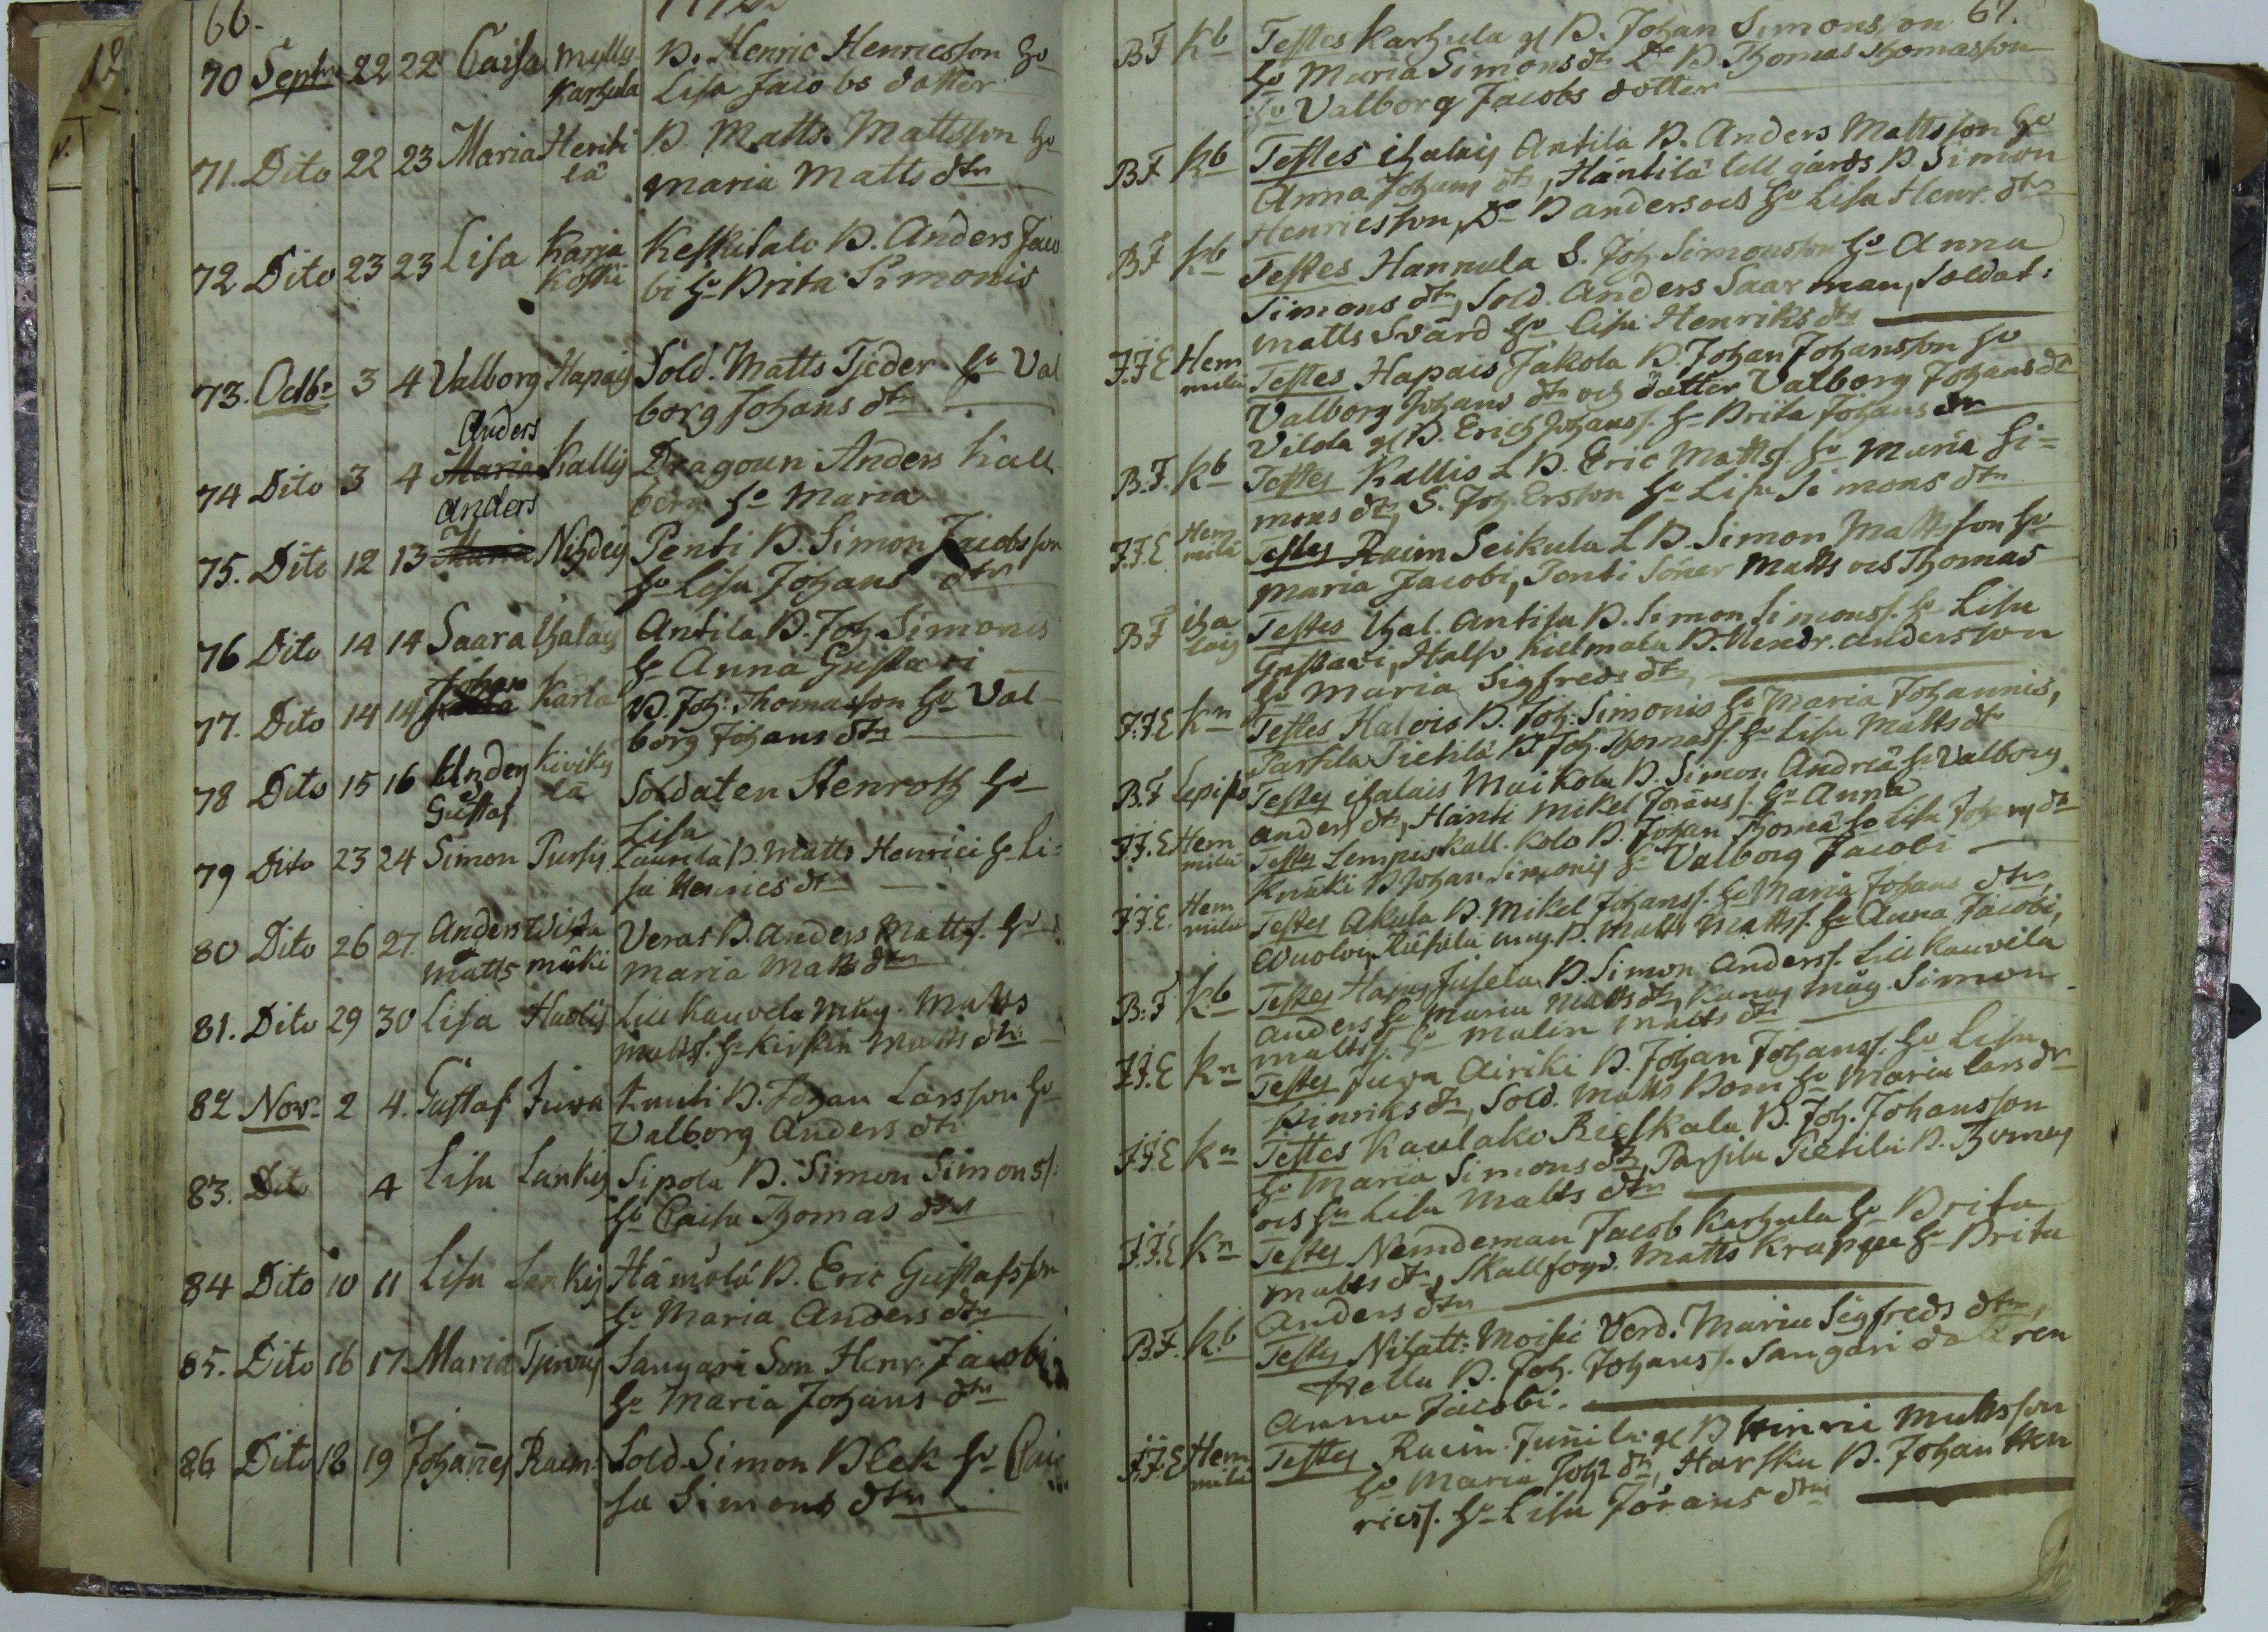 66.
70 Septr 22 22 Caisa Mylly B. Henric Henricsson Ho
Karhula Lisa Jacobs dotter
71. Dito 22 23 Maria Hentilä B. Matts Mattsson Ho
Maria Matts dtr
72 Dito 23 23 Lisa Karja Keskitalo B. Anders Jaco
koski bi Ho Brita Simonis
73. Octbr 3 4 Valborg Hapais Sold. Matts Tjeder Ho Val
borg Johans dtr
Anders
74 Dito 3 4 Maria Kallis Dragoun Anders Kall
berg Ho Maria
Anders
75. Dito 12 13 Maria Nihdeis Penti B. Simon Jacobsson
Ho Lisa Johans dtr
76 Dito 14 14 Saara Ihalais Antila B. Joh Simonis
Ho Anna Gustavi
Johan
77. Dito 14 14 Karla B. Joh: Thomasson Ho Val
borg Johans dtr
78 Dito 15 16 Anders Kiviky
Gustaf lä Soldaten Stenroth Ho
Lisa
79 Dito 23 24 Simon Pursis Laurila B. Matts Henrici Ho Li=
sa Henrics dtr
80 Dito 26 27. Anders Wista Veras B. Anders Mattss. Ho
Matts mäki Maria Matts dtr
81. Dito 29 30 Lisa Huolis Liukauvela Måg. Matts
Mattss. Ho Kirstin Matts dtr
82 Novr 2 4. Gustaf Juva Knuti B. Johan Larsson Ho
Valborg Anders dtr
83. Dito 4 Lisa Lankis Sipola B. Simon Simonss.
Ho Caisa Thomas dtr
84 Dito 10 11 Lisa Lankis Hämölä B. Eric Gustafsson
Ho Maria Anders dtr
85. Dito 16 17 Maria Tjurvis Sangari Son Henr. Jacobi
Ho Maria Johans dtr
86 Dito 18 19 Johannes Raim: Sold. Simon Blek Ho Cai
sa Simons dtr
67.
B.F Kb Testes Karhula gl B. Johan Simonsson
Ho Maria Simons dtr Do B Thomas Thomasson
Ho Valborg Jacobs dotter
B.F Kb Testes Ihalais Antila B. Anders Mattsson Ho
Anna Johans dtr, Häntilä till gårds B Simon
Henricsson, Do B Anders och Ho Lisa Henr. dtr
B.F Kb Testes Hannula S. Joh Simonsson Ho Anna
Simons dtr, Sold. Anders Saarman, Soldat:
Matts Svärd Ho Lisa Henriks dtr
J.J.E Hem
mila Testes Hapais Jakola B. Johan Johansson Ho
Valborg Johans dtr och dotter Valborg Johans dtr
Vilola gl B. Erich Johanss. Ho Brita Johans dtr
B.F. Kb Testes Kallis L B. Eric Mattss. Ho Maria Si=
mons dtr, S. Joh Ersson Ho Lisa Simons dtr
J.J.E Hem
mila Testes Raim Seikula L B. Simon Mattsson Ho
Maria Jacobi, Penti Söner Matts och Thomas
B.F iha
lais Testes Ihal. Antila B. Simon Simonss. Ho Lisa
Gustavi, Halso Kulmala B. Hendr. Andersson
Ho Maria Sigfreds dtr,
J.J.E Kn Testes Halois B. Joh: Simonis Ho Maria Johannis,
Parsila Pietilä B. Joh. Thomass. Ho Lisa Matts dtr
B.F Lepisto Testes Ihalais Maikola B. Simon Andreä Ho Valborg
Anders dtr, Hänti Mikel Göranss. Ho Anna
J.J.E Hem
mila Testes Lempis Kall. Kolo B. Johan Thomä Ho Lisa Johans dtr
Knääki B Johan Simonis Ho Valborg Jacobi
J.J.E. Hem
mila Testes Akula B. Mikel Johanss. Ho Maria Johans dtr,
B. Matts Mattss. Ho Anna Jacobi,
B.F Kb Testes B. Simon Anderss. Liukauvila
Anders Ho Maria Matts dtr, Måg Simon
Mattss. Ho Malin Matts dtr
J.J.E Kn Testes Juva Airiki B. Johan Johanss. Ho Lisa
Hinriks dtr, Sold. Matts Bom Ho Maria Lars dtr
J.J.E Kn Testes Kaulako Rielkala B. Joh. Johansson
Ho Maria Simons dtr, Parsila Pietilä B. Thomas
och Hu Lisa Matts dtr
J.J.E Kn Testes Nemdeman Jacob Karhula Ho Brita
Matts dtr, Skallfogd. Matts Krappe Ho Brita
Anders dtr
B.F. Kb Testes Nihatt: Moisi Verd. Maria Sigfreds dtr,
Trella B. Joh. Johanss. Sangari dottren
Anna Jacobi.
J.J.E Hem
mila Testes Raim. Junila gl B Hinric Mattsson
Ho Maria Joh dtr, Harsku B. Johan Hen
ricss. Ho Lisa Görans dtr